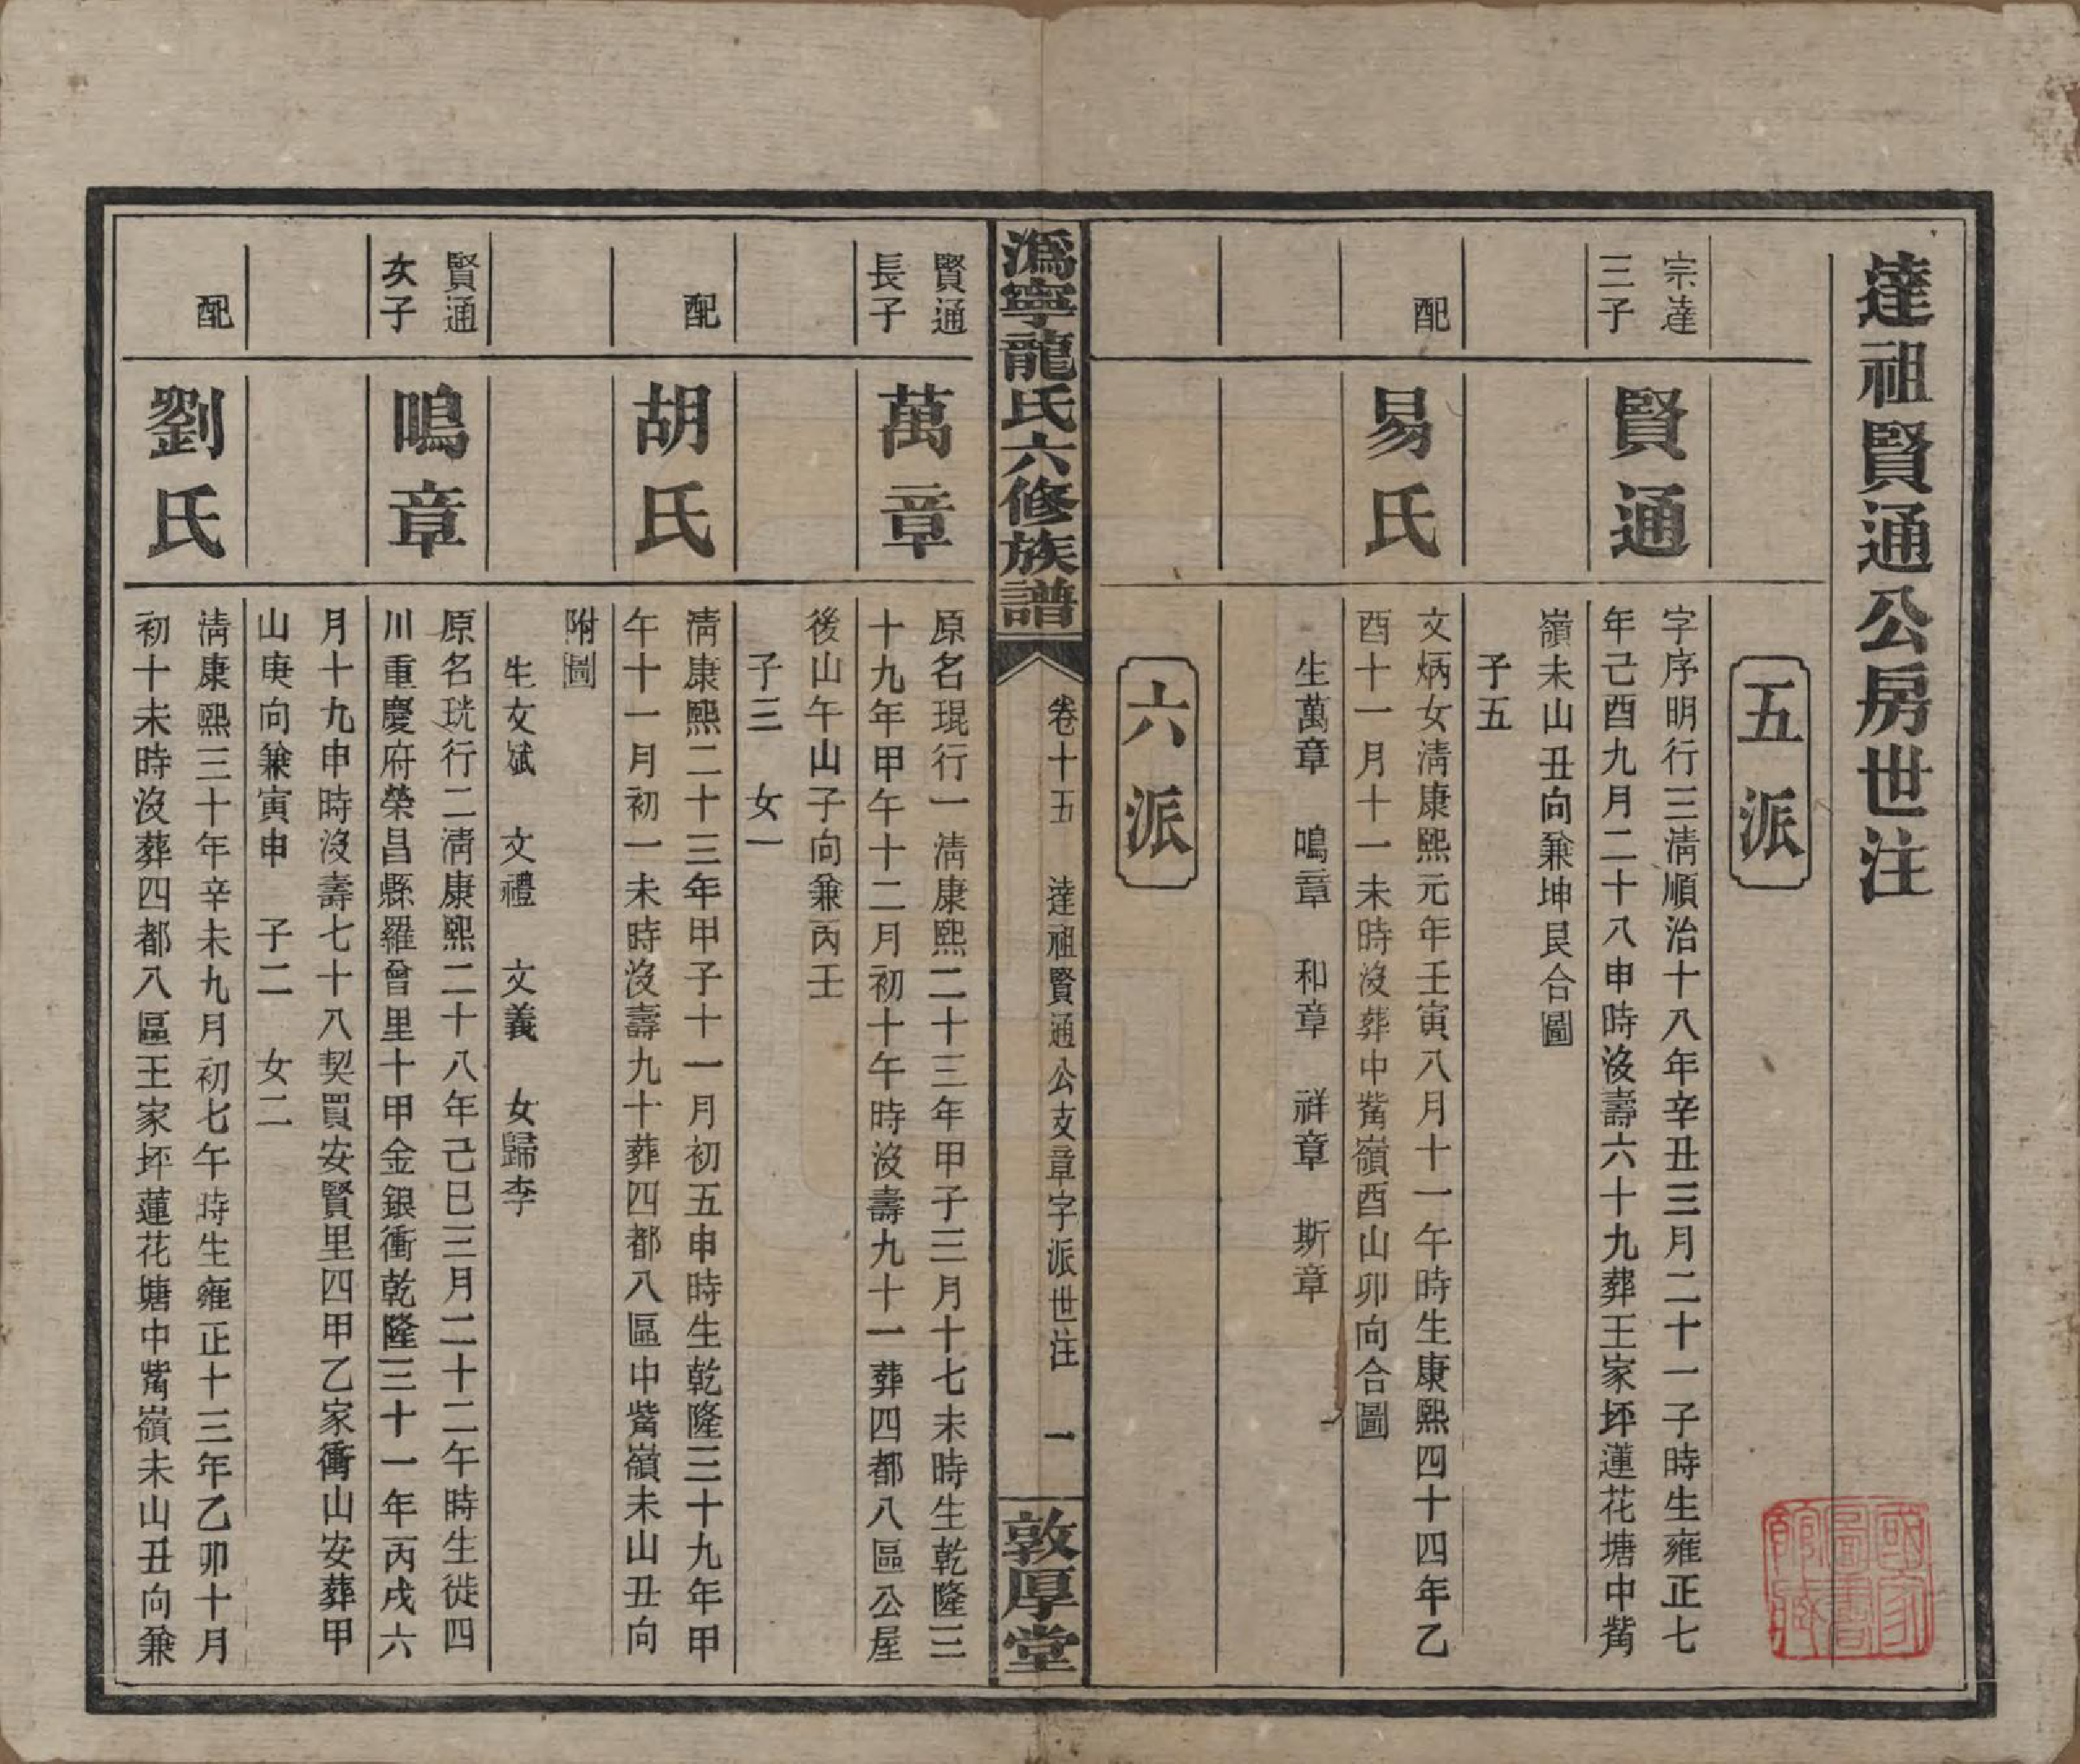 達祖賢通公房世注
五派
宗達
三子
賢通
字序明行三清順治十八年辛丑三月二十一子時生雍正七
年己酉九月二十八申時沒壽六十九葬王家坪蓮花塘中觜
嶺未山丑向兼坤艮合圖
子五
配
易氏
文炳女清康熙元年壬寅八月十一午時生康熙四十四年乙
酉十一月十一未時沒葬中觜嶺酉山卯向合圖
生萬章 鳴章 和章 祥章 斯章
六派
溈寧龍氏六修族譜
卷十五 達祖賢通公支章字派世注 一
敦厚堂
賢通
長子
萬章
原名琨行一清康熙二十三年甲子三月十七未時生乾隆三
十九年甲午十二月初十午時沒壽九十一葬四都八區公屋
後山午山子向兼丙壬
子三 女一
配
胡氏
清康熙二十三年甲子十一月初五申時生乾隆三十九年甲
午十一月初一未時沒壽九十葬四都八區中觜嶺未山丑向
附圖
生文斌 文禮 文義 女歸李
賢通
次子
鳴章
原名珖行二清康熙二十八年己巳三月二十二午時生徙四
川重慶府榮昌縣羅曾里十甲金銀衝乾隆三十一年丙戌六
月十九申時沒壽七十八契買安賢里四甲乙家衝山安葬甲
山庚向兼寅申 子二 女二
配
劉氏
清康熙三十年辛未九月初七午時生雍正十三年乙卯十月
初十未時沒葬四都八區王家坪蓮花塘中觜嶺未山丑向兼
國家
圖書
館藏